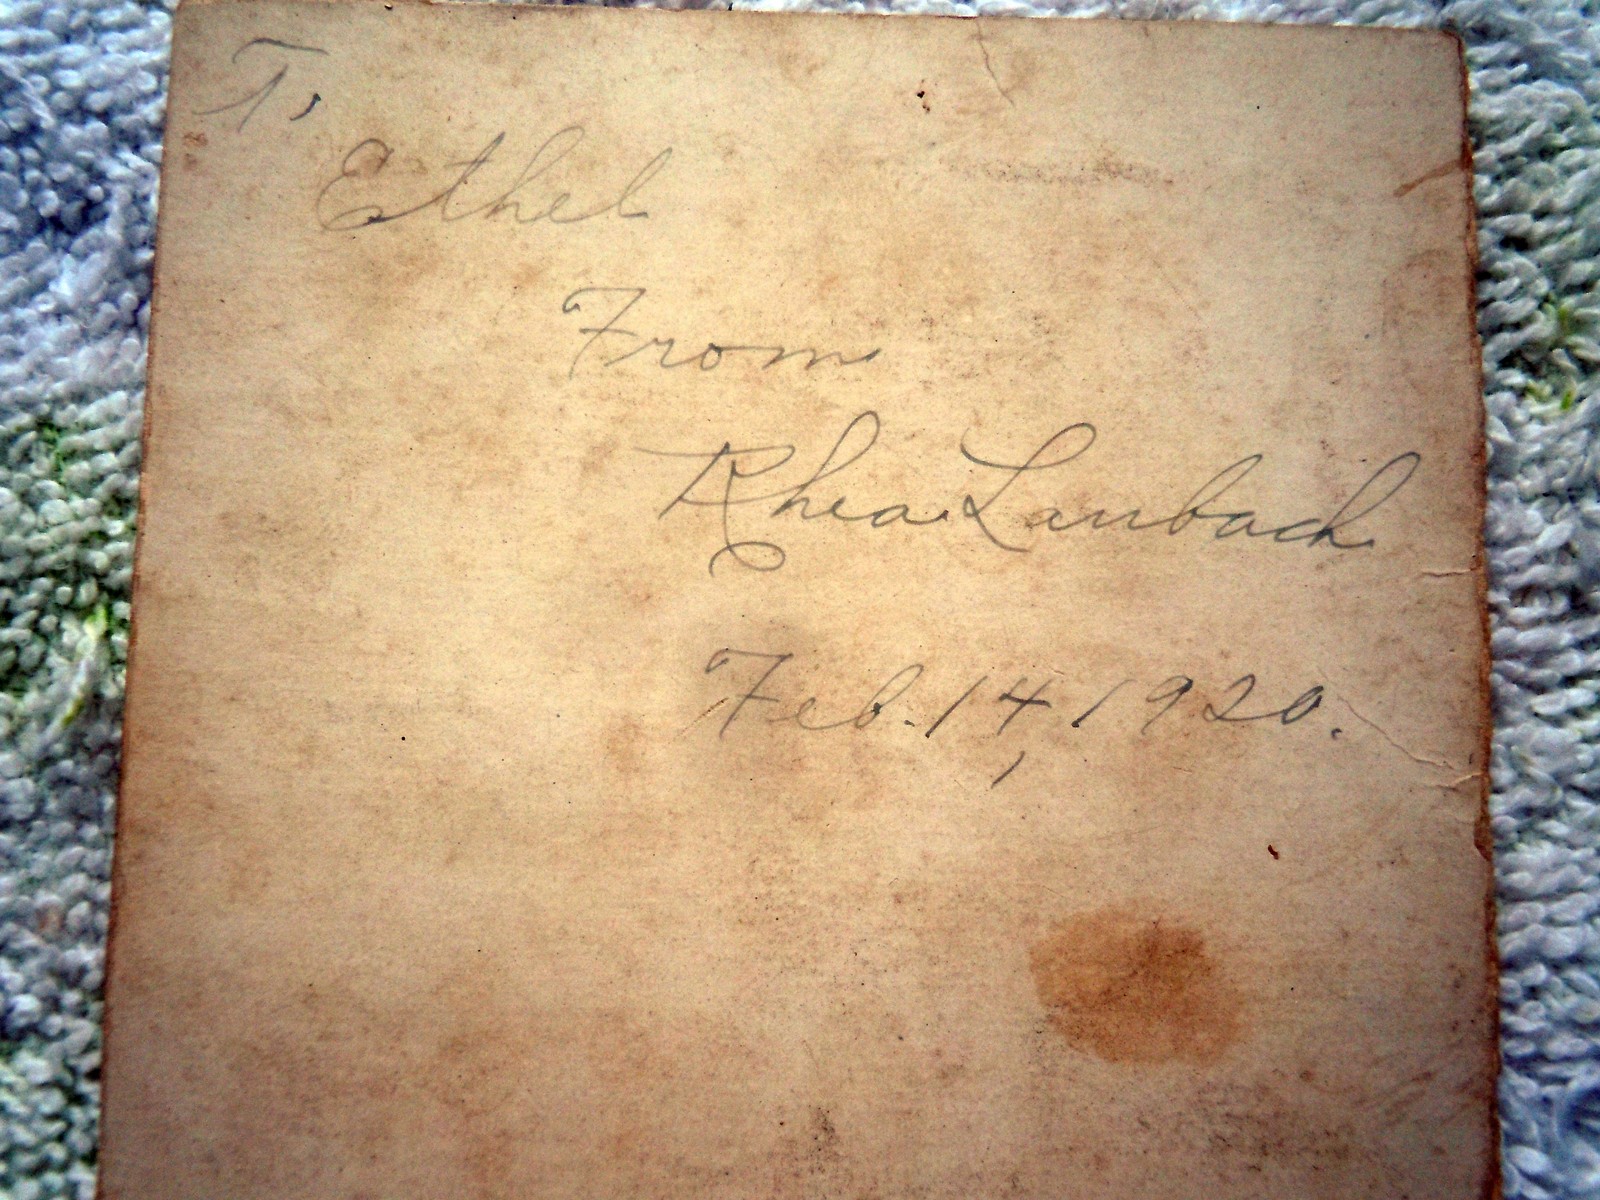 To
Ethel
From
Rhea Laubach
Feb. 14, 1920.